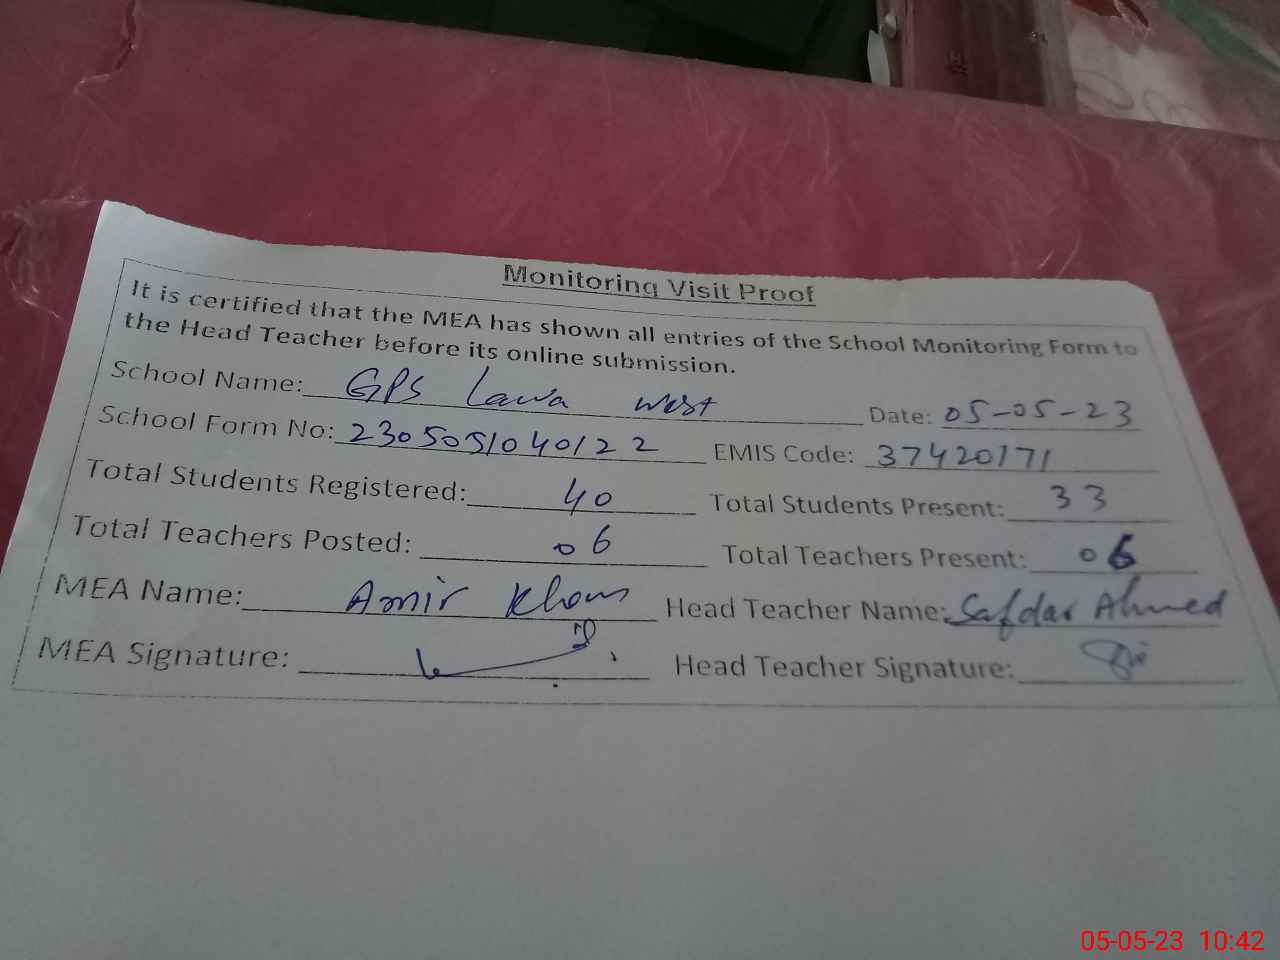 Monitoring Visit Proof
It is certified that the MEA has shown all entries of the School Monitoring Form to
the Head Teacher before its online submission.
School Name: GPS Lawa West Date: 05-05-23
School Form No: 2305051040122 EMIS Code: 37420171
Total Students Registered: 40 Total Students Present: 33
Total Teachers Posted: 06 Total Teachers Present: 06
MEA Name: Amir Khan Head Teacher Name: Safdar Ahmed
MEA Signature: Head Teacher Signature:
05-05-23 10:42